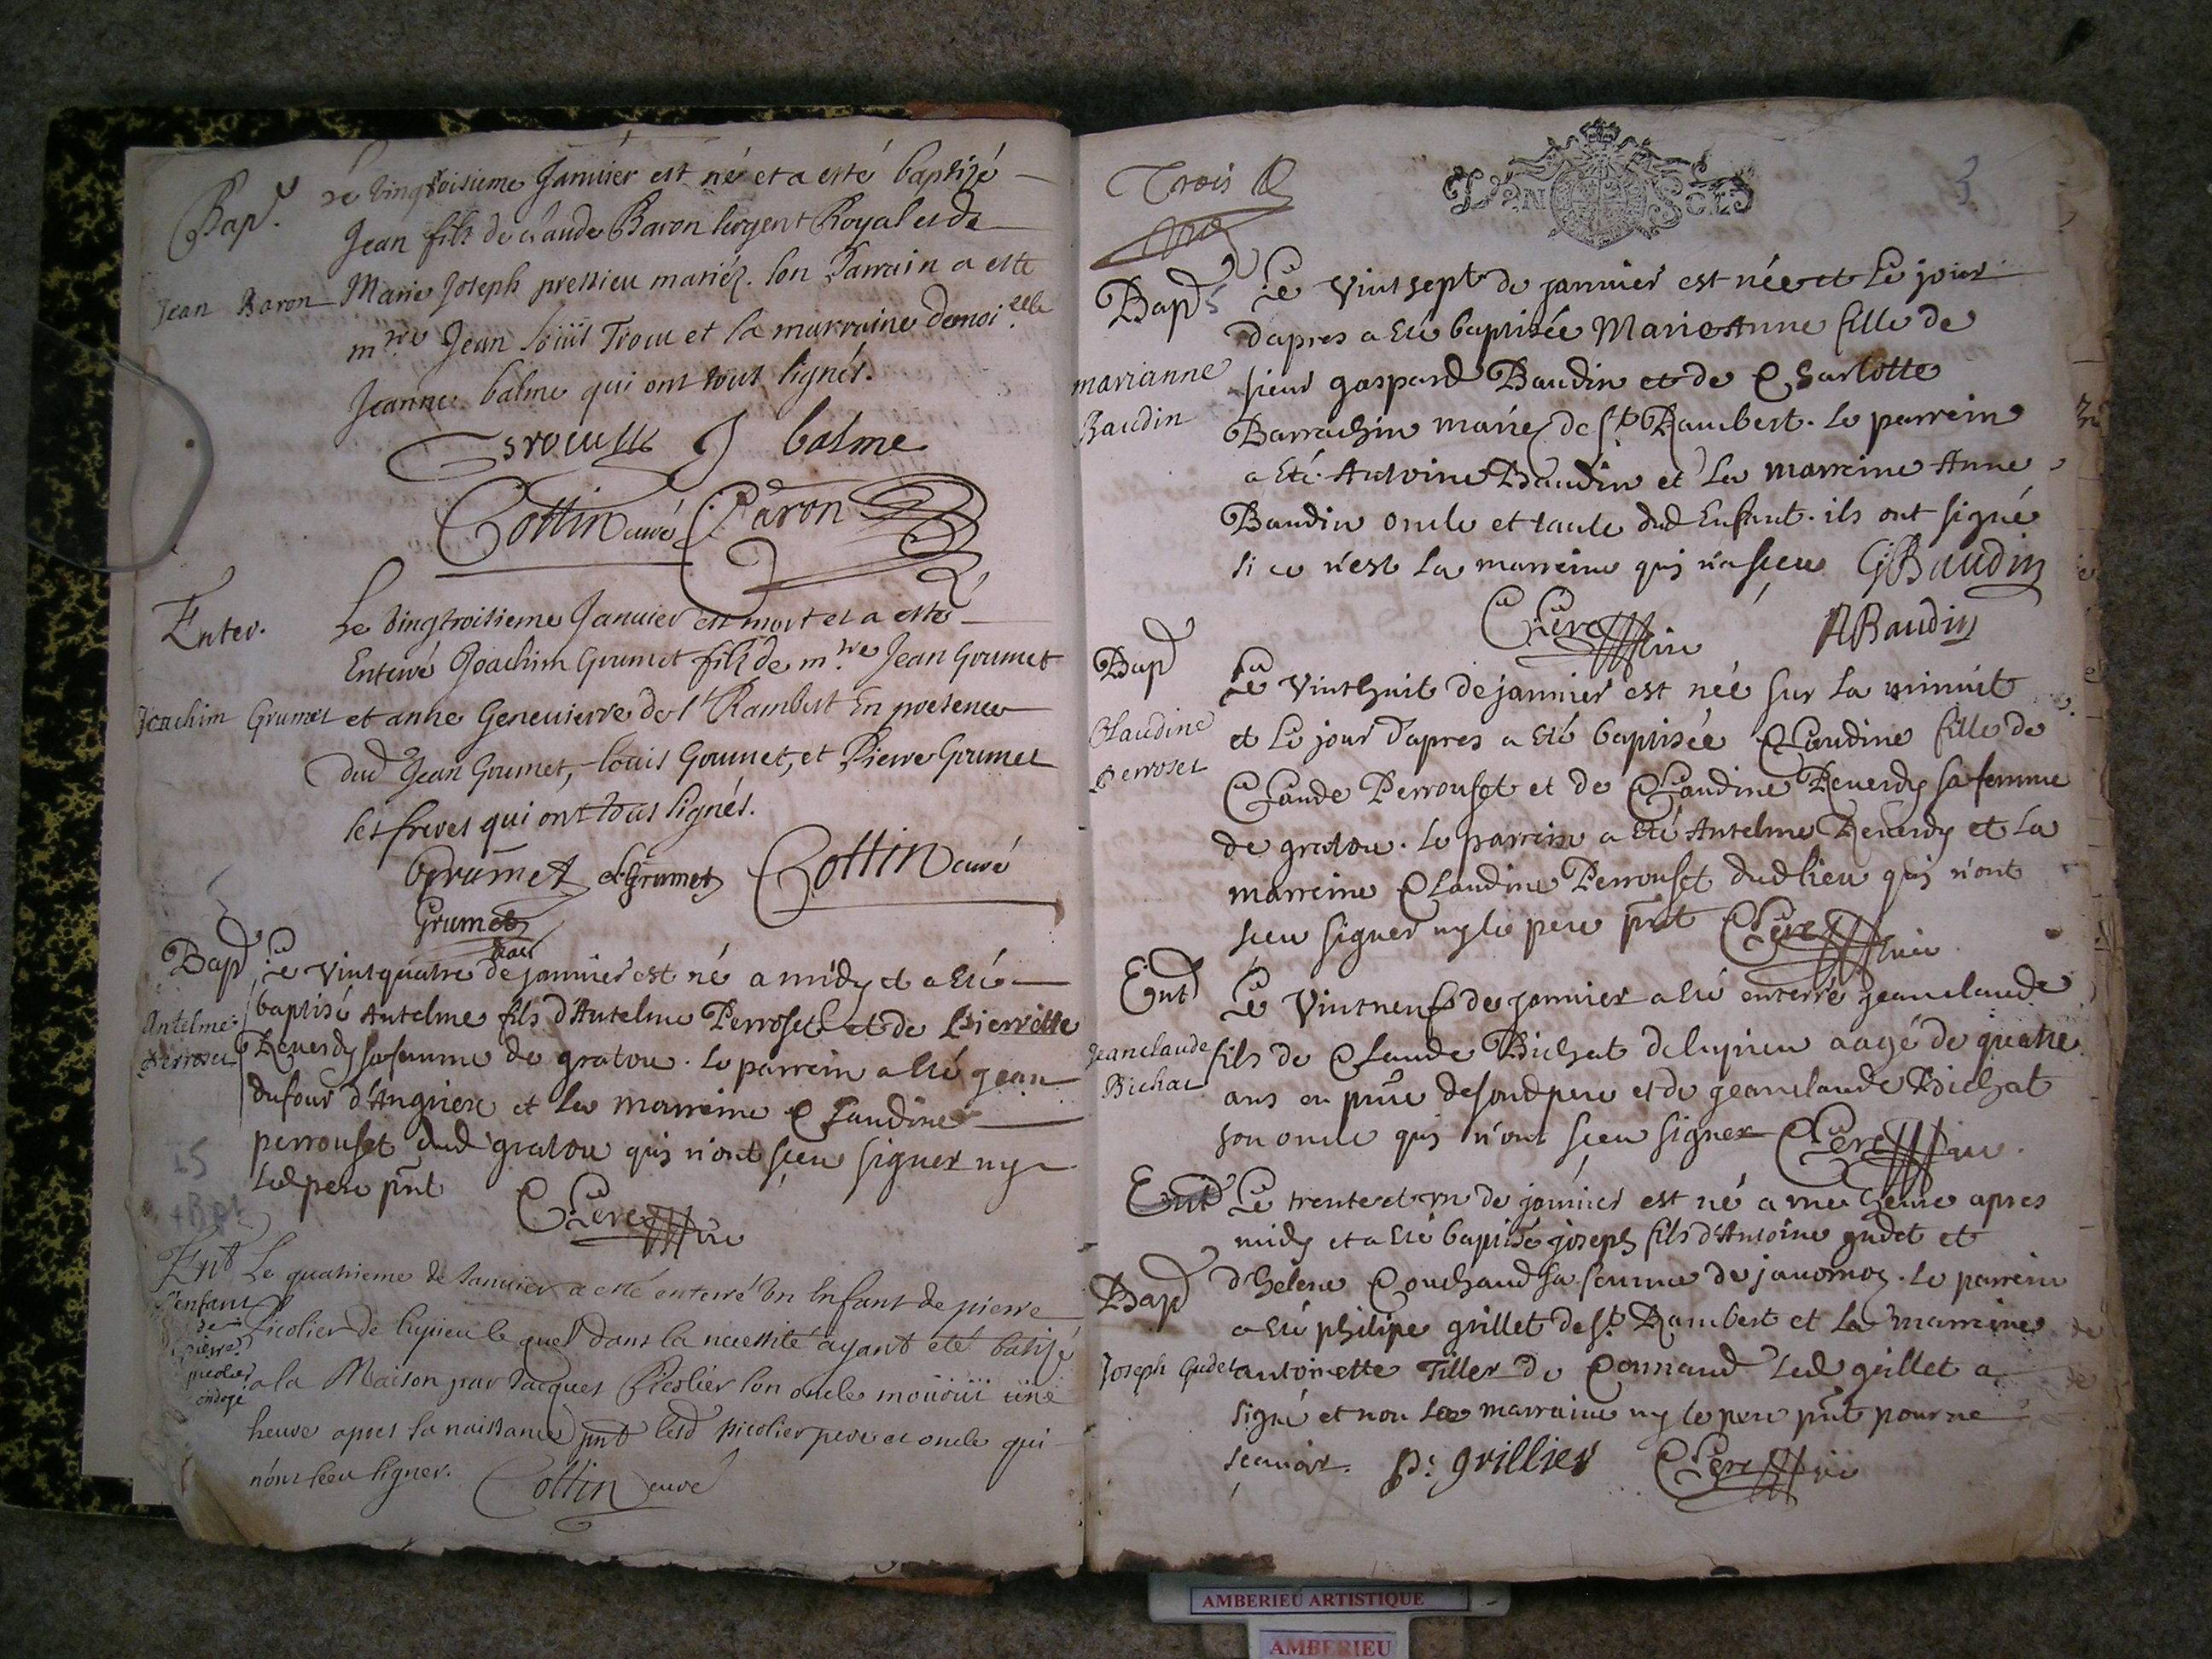 Bap.
Le vingtroisieme Janvier est né et a esté baptizé
Jean fils de claude Baron sergent Royal et de
Jean Baron
Marie Joseph pressieu mariéz. son Parrain a esté
mre Jean loüis Trocu et la marraine demoiselle
Jeanne balme qui ont tous signés.
J balme
Cottin curé Baron
Enter.
Le vingtroisieme Janvier est mort et a esté
Enterré Joachim Grumet fils de mre Jean Grumet
Joachim Grumet
et anne Genevieve de st Rambert En presence
dud Jean Grumet, louis Grumet, et Pierre Grumet
ses freres qui ont tous signés.
Grumet L Grumet Cottin curé
Grumet
Bap
Le vint quatre de janvier est né a midy et a eté
Antelme Perroset
baptisé Antelme fils d'Antelme Perroset et de Pierrette
Reverdy sa femme de gratou. le parrein a eté jean
dufour d'Angriere et la marreine Claudine
perrouset dud gratou qui n'ont sceu signer ny
led pere pnt Clerc vic
Ent
Le quatrieme de Janvier a esté enterré Un Enfant de pierre
l'enfant de pierre picolier ondoyé
Picolier de lupieu le quel dans la necessité ayant eté batisé
a la Maison par Jacques Picolier son oncle mouout üne
heure apres sa naissance pnt lesd picolier pere et oncle qui
n'ont sceu signer. Cottin curé
Trois
3
Bap
Le vint sept de janvier est née et le jour
d'apres a eté baptisée Marie Anne fille de
marianne Baudin
sieur gaspard Baudin et de Charlotte
Barrachin mariez de St Rambert. le parrein
a eté Antoine Baudin et la marreine Anne
Baudin oncle et tante dud Enfant. ils ont signé
si ce n'est la marreine qui n'a sceu G Baudin
Clerc vic A Baudin
Bap
Le vint huit de janvier est née sur la minuit
Claudine Perroset
et le jour d'apres a eté baptisée Claudine fille de
Claude Perrouset et de Claudine Reverdy sa femme
de gratou. le parrein a eté Antelme Reverdy et la
marreine Claudine Perrouset dud lieu qui n'ont
sceu signer ny le pere pnt Clerc vic
Ent
Le vint neuf de janvier a eté enterré jeanclaude
Jeanclaude Bichat
fils de Claude Bichat de lupieu aagé de quatre
ans en pnce de sond pere et de jeanclaude Bichat
son oncle qui n'ont sceu signer Clerc vic.
Ent
Le trente et un de janvier est né a une heure apres
midy et a eté baptisé joseph fils d'Antoine gudet et
Bap
d'helene Couchaud sa femme de javornoz. le parrein
a eté philipe grillet de St. Rambert et la marreine
Joseph Gudet
antoinette Tiller de Connand led grillet a
signé et non la marraine ny le pere pnt pour ne
scavoir. p: grillier Clerc vic
AMBERIEU ARTISTIQUE
AMBERIEU